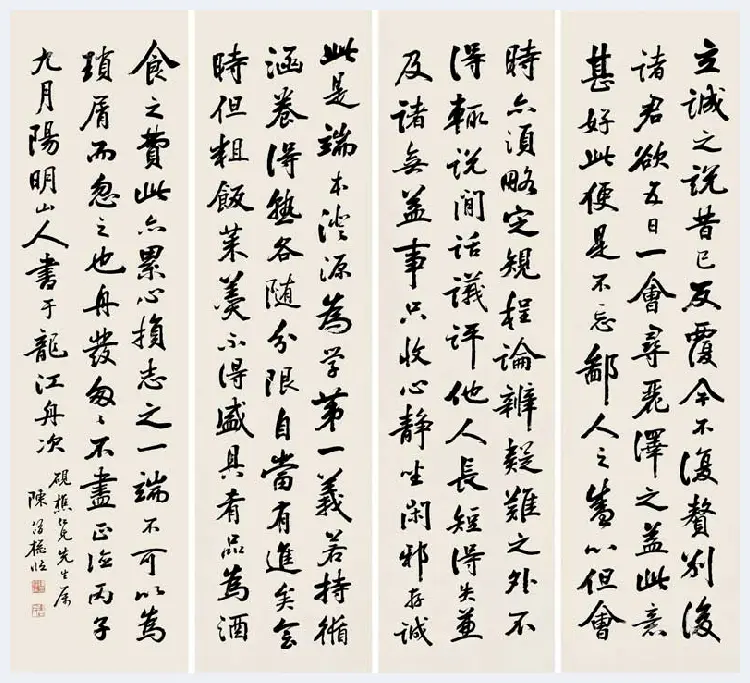 立誠之說昔已反覆今不復贅別後
諸君欲五日一會尋麗澤之益此意
甚好此便是不忘鄙人之盛心但會
時亦須略定規程論辨疑難之外不
得輒說閒話議評他人長短得失兼
及諸無益事只收心靜坐閑邪存誠
此是端本澄源為學第一義若持循
涵養得熟各隨分限自當有進矣會
時但粗飯菜羹不得盛具肴品為酒
食之費此亦累心損志之一端不可以為
瑣屑而忽之也舟發匆々不盡正德丙子
九月陽明山人書于龍江舟次
硯樵兄先生屬
陳臨